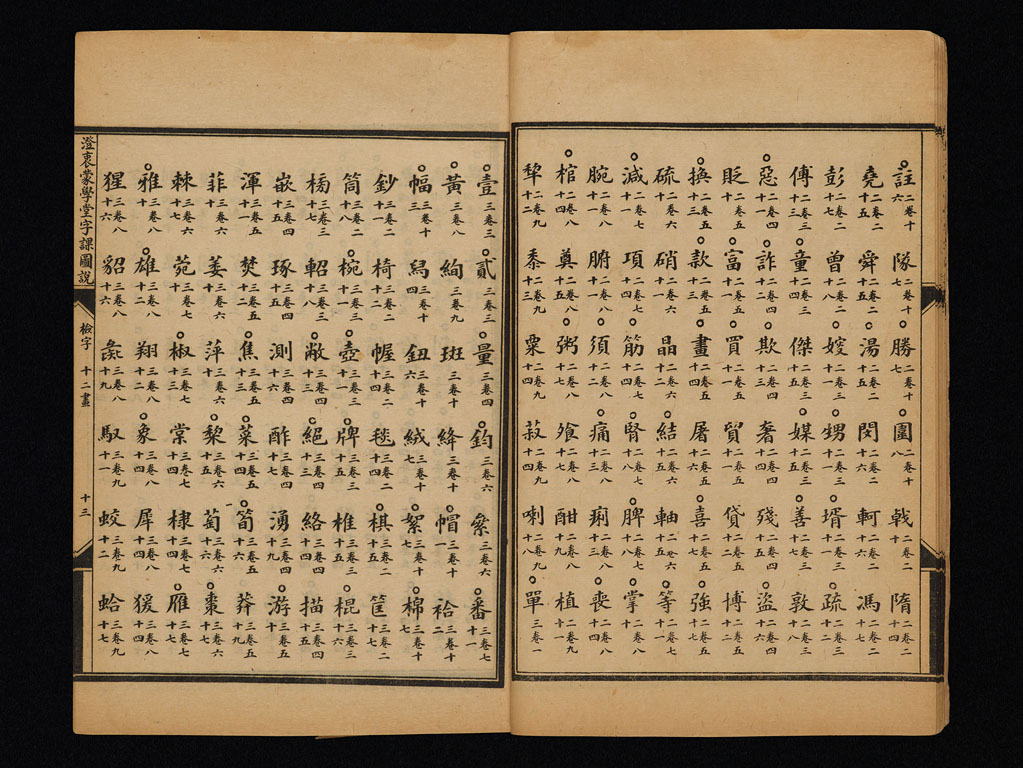 註二卷十六 隊二卷十七 勝二卷十七 圍二卷十八 戟二卷二十 隋二卷二十四
堯二卷二十五 舜二卷二十五 湯二卷二十五 閔二卷二十六 軻二卷二十六 馮二卷二十七
彭二卷二十七 曾二卷二十八 嫂二卷三十一 甥二卷三十一 壻二卷三十一 疏二卷三十二
傅二卷三十三 童二卷三十四 傑二卷三十五 媒二卷三十五 善二卷三十七 敦二卷三十八
惡二卷四十一 詐二卷四十二 欺二卷四十三 奢二卷四十四 殘二卷四十五 盜二卷四十六
貶二卷五十一 富二卷五十一 買二卷五十一 貿二卷五十一 貸二卷五十二 博二卷五十二
換二卷五十三 款二卷五十三 畫二卷五十四 屠二卷五十六 喜二卷五十七 強二卷五十七
硫二卷六十一 硝二卷六十一 晶二卷六十二 結二卷六十四 軸二卷六十五 等二卷七十一
減二卷七十一 項二卷七十四 筋二卷七十四 腎二卷七十八 脾二卷七十八 掌二卷八十
腕二卷八十一 腑二卷八十一 須二卷八十二 痛二卷八十三 痢二卷八十三 喪二卷八十四
棺二卷八十四 奠二卷八十五 粥二卷八十七 飱二卷八十七 酣二卷八十九 植二卷九十一
犂二卷九十二 黍二卷九十三 粟二卷九十四 菽二卷九十四 喇二卷九十八 單三卷一
壹三卷三 貳三卷三 量三卷四 鈞三卷六 絫三卷六 番三卷七十一
黃三卷八 絢三卷九 斑三卷十 絳三卷十 帽三卷十一 袷三卷十二
幅三卷十三 舄三卷十四 鈕三卷十六 絨三卷十七 絮三卷十七 棉三卷十七
鈔三卷二十一 椅三卷二十二 幄三卷二十四 毯三卷二十四 棋三卷二十五 筐三卷二十七
筒三卷二十八 椀三卷三十一 壺三卷三十一 牌三卷三十一 椎三卷三十五 棍三卷三十六
三卷三十七 軺三卷三十八 敞三卷四十三 絕三卷四十三 絡三卷四十四 描三卷四十五
嵌三卷四十五 琢三卷四十五 測三卷四十六 酢三卷四十七 湧三卷四十九 游三卷五十
渾三卷五十一 焚三卷五十二 焦三卷五十三 菜三卷五十四 筍三卷五十六 莽三卷五十九
菲三卷六十 萎三卷六十 萍三卷六十 黎三卷六十五 萄三卷六十六 棗三卷六十七
棘三卷六十七 菀三卷七十 椒三卷七十三 棠三卷七十四 棣三卷七十四 雁三卷七十七
雅三卷八十 雄三卷八十二 翔三卷八十二 象三卷八十四 犀三卷八十四 猨三卷八十四
猩三卷八十六 貂三卷八十六 彘三卷八十九 馭三卷九十一 蛟三卷九十二 蛤三卷九十七
澄衷蒙學堂字課圖說 檢字 十二畫 十三